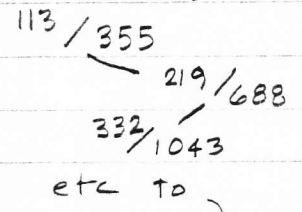 113/355
219/688
332/1043
etc to